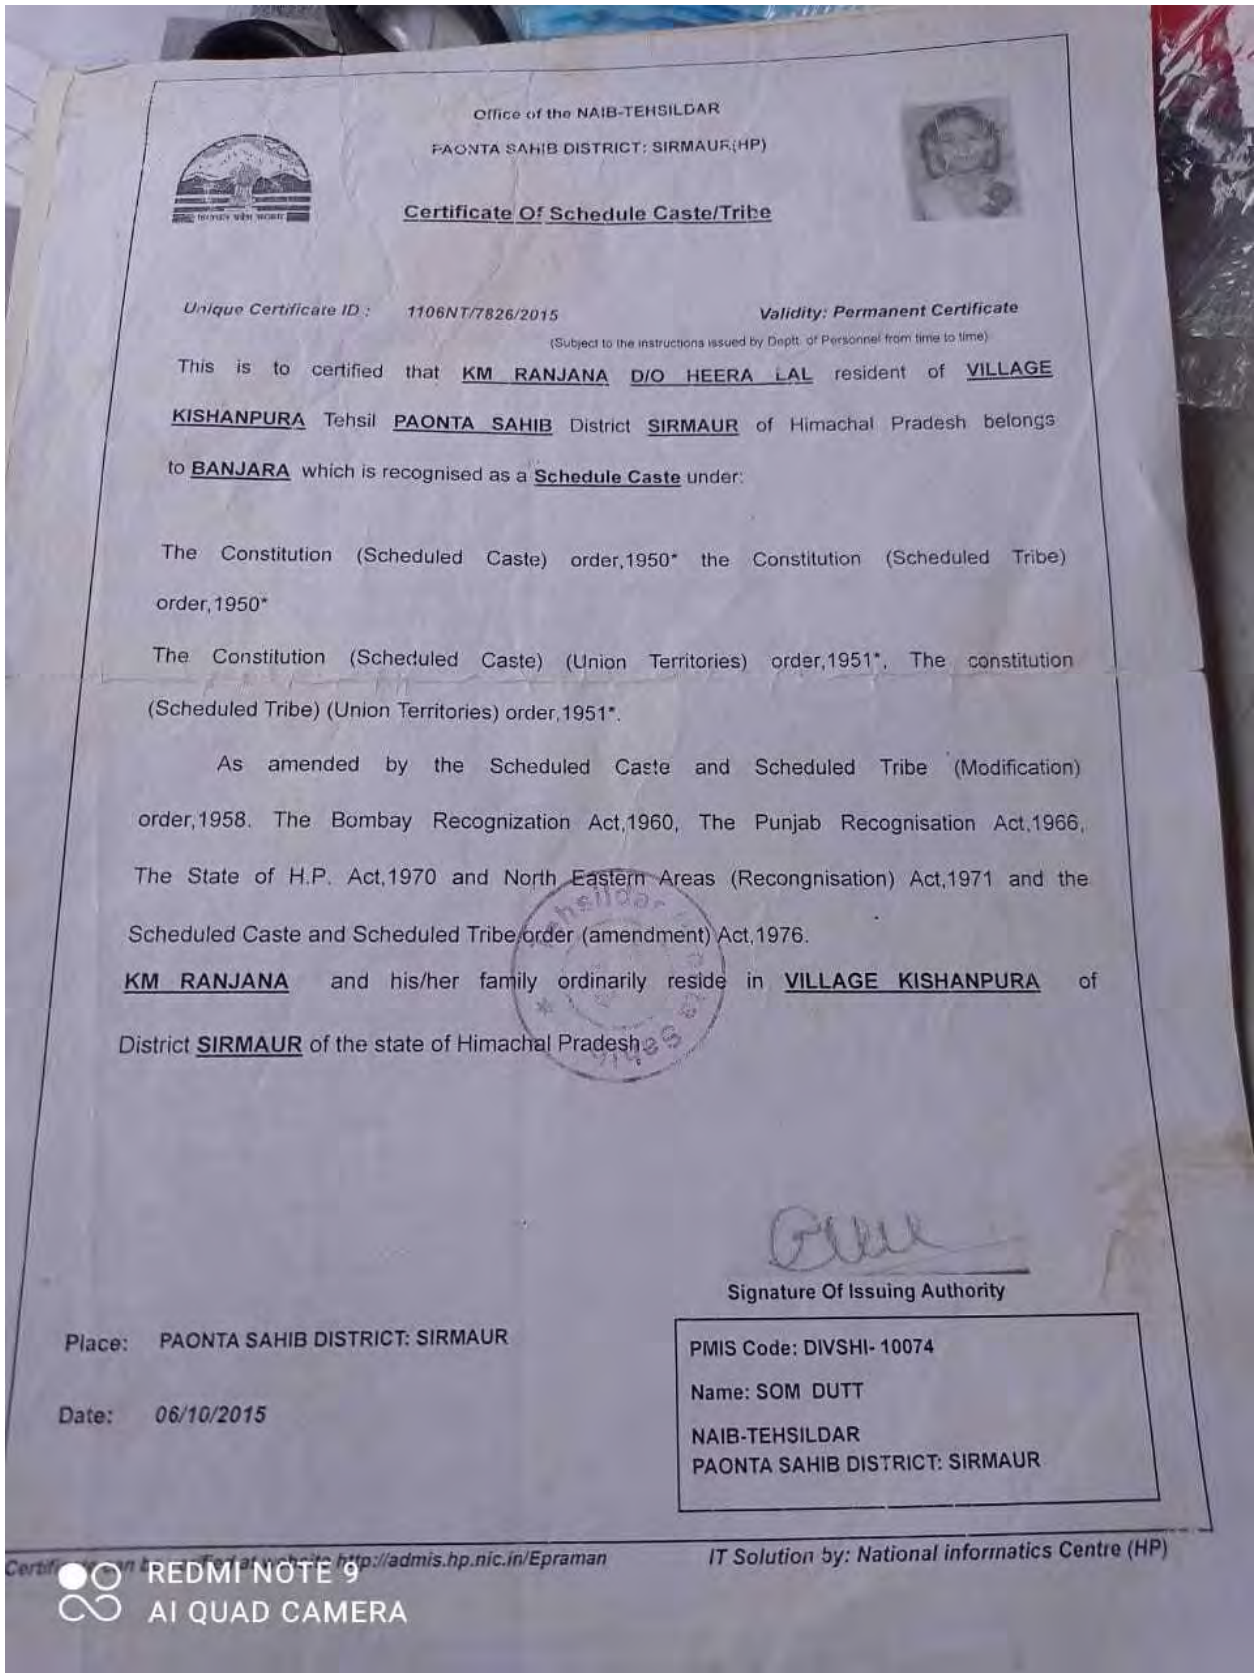 Office of the NAIB-TEHSILDAR
PAONTA SAHIB DISTRICT: SIRMAUR(HP)
हिमाचल प्रदेश सरकार
Certificate Of Schedule Caste/Tribe
Unique Certificate ID : 1106NT/7826/2015 Validity: Permanent Certificate
(Subject to the instructions issued by Deptt. of Personnel from time to time)
This is to certified that KM RANJANA D/O HEERA LAL resident of VILLAGE
KISHANPURA Tehsil PAONTA SAHIB District SIRMAUR of Himachal Pradesh belongs
to BANJARA which is recognised as a Schedule Caste under:
The Constitution (Scheduled Caste) order,1950* the Constitution (Scheduled Tribe)
order,1950*
The Constitution (Scheduled Caste) (Union Territories) order,1951*, The constitution
(Scheduled Tribe) (Union Territories) order,1951*.
As amended by the Scheduled Caste and Scheduled Tribe (Modification)
order,1958. The Bombay Recognization Act,1960, The Punjab Recognisation Act,1966,
The State of H.P. Act,1970 and North Eastern Areas (Recongnisation) Act,1971 and the
Scheduled Caste and Scheduled Tribe order (amendment) Act,1976.
KM RANJANA and his/her family ordinarily reside in VILLAGE KISHANPURA of
District SIRMAUR of the state of Himachal Pradesh
Tehsildar
Sahib
Signature Of Issuing Authority
Place: PAONTA SAHIB DISTRICT: SIRMAUR
Date: 06/10/2015
PMIS Code: DIVSHI- 10074
Name: SOM DUTT
NAIB-TEHSILDAR
PAONTA SAHIB DISTRICT: SIRMAUR
http://admis.hp.nic.in/Epraman IT Solution by: National informatics Centre (HP)
REDMI NOTE 9
AI QUAD CAMERA